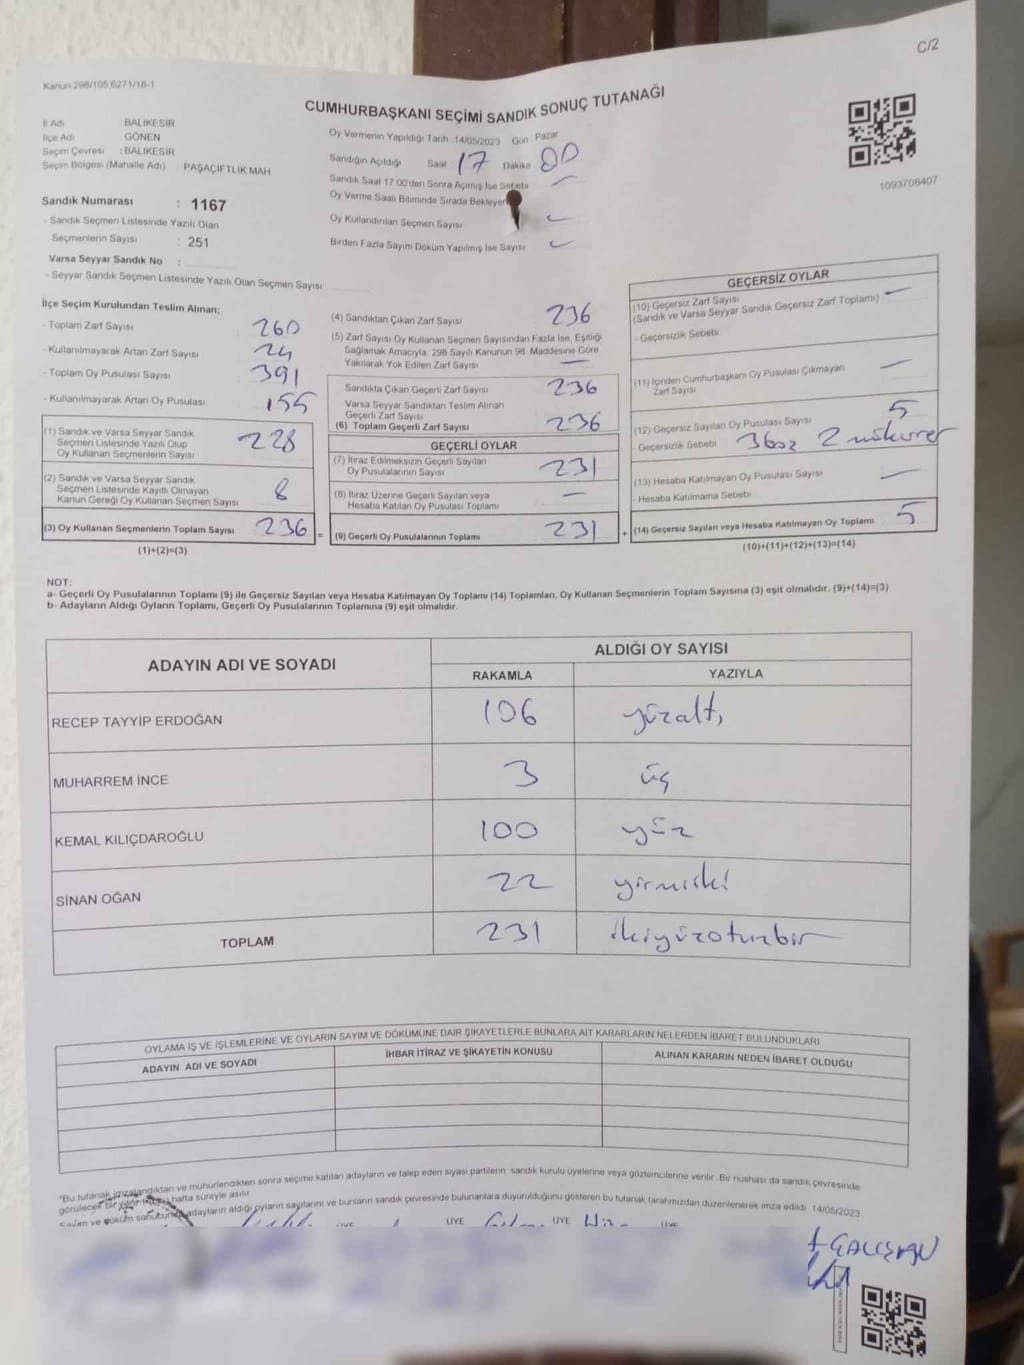 C/2
Kanun 298/105;6271/18-1
CUMHURBAŞKANI SEÇİMİ SANDIK SONUÇ TUTANAĞI
İl Adı BALIKESİR
İlçe Adı GÖNEN
Seçim Çevresi : BALIKESİR
Seçim Bölgesi (Mahalle Adı) PAŞAÇİFTLİK MAH
Sandık Numarası : 1167
- Sandık Seçmen Listesinde Yazılı Olan
Seçmenlerin Sayısı : 251
Varsa Seyyar Sandık No :
- Seyyar Sandık Seçmen Listesinde Yazılı Olan Seçmen Sayısı
Oy Vermenin Yapıldığı Tarih 14/05/2023 Gün Pazar
Sandığın Açıldığı Saat 17 Dakika 00
Sandık Saat 17:00'den Sonra Açılmış İse Sebebi
Oy Verme Saati Bitiminde Sırada Bekleyen
Oy Kullandırılan Seçmen Sayısı
Birden Fazla Sayım Döküm Yapılmış İse Sayısı
1093708407
İlçe Seçim Kurulundan Teslim Alınan;
- Toplam Zarf Sayısı 260
- Kullanılmayarak Artan Zarf Sayısı 24
- Toplam Oy Pusulası Sayısı 391
- Kullanılmayarak Artan Oy Pusulası 155
(1) Sandık ve Varsa Seyyar Sandık
Seçmen Listesinde Yazılı Olup
Oy Kullanan Seçmenlerin Sayısı 228
(2) Sandık ve Varsa Seyyar Sandık
Seçmen Listesinde Kayıtlı Olmayan
Kanun Gereği Oy Kullanan Seçmen Sayısı 8
(3) Oy Kullanan Seçmenlerin Toplam Sayısı 236 =
(1)+(2)=(3)
(4) Sandıktan Çıkan Zarf Sayısı 236
(5) Zarf Sayısı Oy Kullanan Seçmen Sayısından Fazla İse, Eşitliği
Sağlamak Amacıyla, 298 Sayılı Kanunun 98. Maddesine Göre
Yakılarak Yok Edilen Zarf Sayısı
Sandıkta Çıkan Geçerli Zarf Sayısı 236
Varsa Seyyar Sandıktan Teslim Alınan
Geçerli Zarf Sayısı
(6) Toplam Geçerli Zarf Sayısı 236
GEÇERLİ OYLAR
(7) İtiraz Edilmeksizin Geçerli Sayılan
Oy Pusulalarının Sayısı 231
(8) İtiraz Üzerine Geçerli Sayılan veya
Hesaba Katılan Oy Pusulası Toplamı
(9) Geçerli Oy Pusulalarının Toplamı 231 +
GEÇERSİZ OYLAR
(10) Geçersiz Zarf Sayısı
(Sandık ve Varsa Seyyar Sandık Geçersiz Zarf Toplamı)
- Geçersizlik Sebebi
(11) İçinden Cumhurbaşkanı Oy Pusulası Çıkmayan
Zarf Sayısı
(12) Geçersiz Sayılan Oy Pusulası Sayısı 5
- Geçersizlik Sebebi 3 boş 2 mükerrer
(13) Hesaba Katılmayan Oy Pusulası Sayısı
- Hesaba Katılmama Sebebi
(14) Geçersiz Sayılan veya Hesaba Katılmayan Oy Toplamı 5
(10)+(11)+(12)+(13)=(14)
NOT:
a- Geçerli Oy Pusulalarının Toplamı (9) ile Geçersiz Sayılan veya Hesaba Katılmayan Oy Toplamı (14) Toplamları, Oy Kullanan Seçmenlerin Toplam Sayısına (3) eşit olmalıdır. (9)+(14)=(3)
b- Adayların Aldığı Oyların Toplamı, Geçerli Oy Pusulalarının Toplamına (9) eşit olmalıdır.
ADAYIN ADI VE SOYADI ALDIĞI OY SAYISI
RAKAMLA YAZIYLA
RECEP TAYYİP ERDOĞAN 106 yüzaltı
MUHARREM İNCE 3 üç
KEMAL KILIÇDAROĞLU 100 yüz
SİNAN OĞAN 22 yirmiiki
TOPLAM 231 ikiyüzotuzbir
OYLAMA İŞ VE İŞLEMLERİNE VE OYLARIN SAYIM VE DÖKÜMÜNE DAİR ŞİKAYETLERLE BUNLARA AİT KARARLARIN NELERDEN İBARET BULUNDUKLARI
ADAYIN ADI VE SOYADI İHBAR İTİRAZ VE ŞİKAYETİN KONUSU ALINAN KARARIN NEDEN İBARET OLDUĞU
"Bu tutanak imzalandıktan ve mühürlendikten sonra seçime katılan adayların ve talep eden siyasi partilerin sandık kurulu üyelerine veya gözlemcilerine verilir. Bir nüshası da sandık çevresinde
görülecek bir yere hafta süreyle asılır.
Sayım ve döküm sonunda adayların aldığı oyların sayılarını ve bunların sandık çevresinde bulunanlara duyurulduğunu gösteren bu tutanak tarafımızdan düzenlenerek imza edildi. 14/05/2023
ÜYE ÜYE ÜYE ÜYE